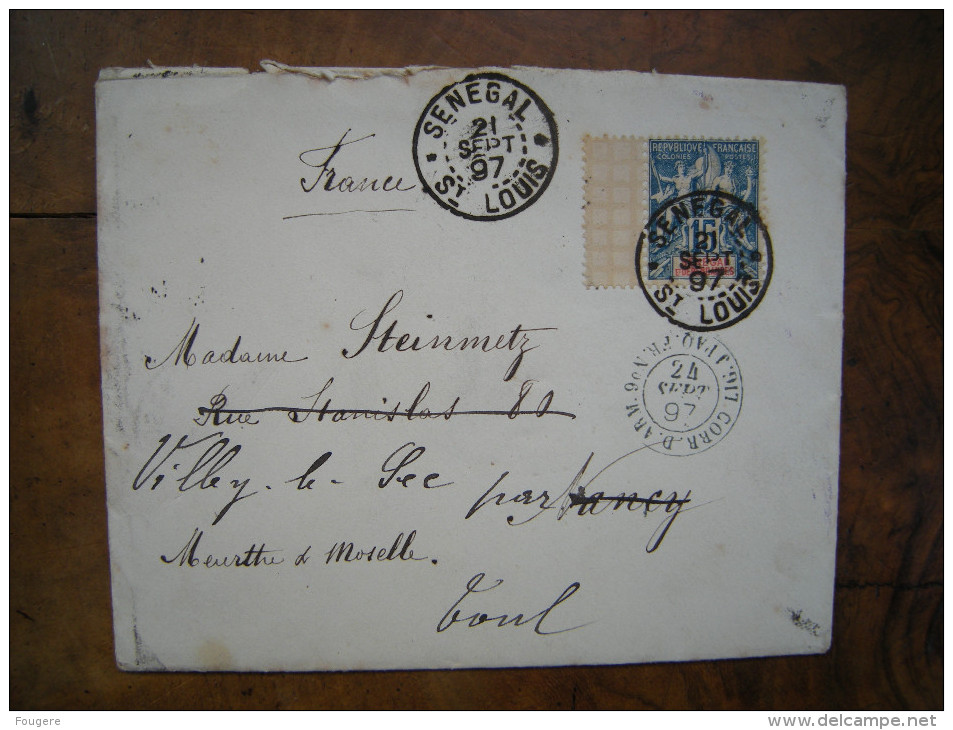 SENEGAL
21
SEPT
97
ST LOUIS
REPVBLIQVE FRANCAISE
COLONIES POSTES
15
SENEGAL
21
SEPT
97
ST LOUIS
France
Madame Steinmetz
Rue Stanislas 80
Villey-le-Sec par Nancy
Meurthe & Moselle.
Toul
CORR.D.ARM.
24
SEPT
97
Fougere
www.delcampe.net